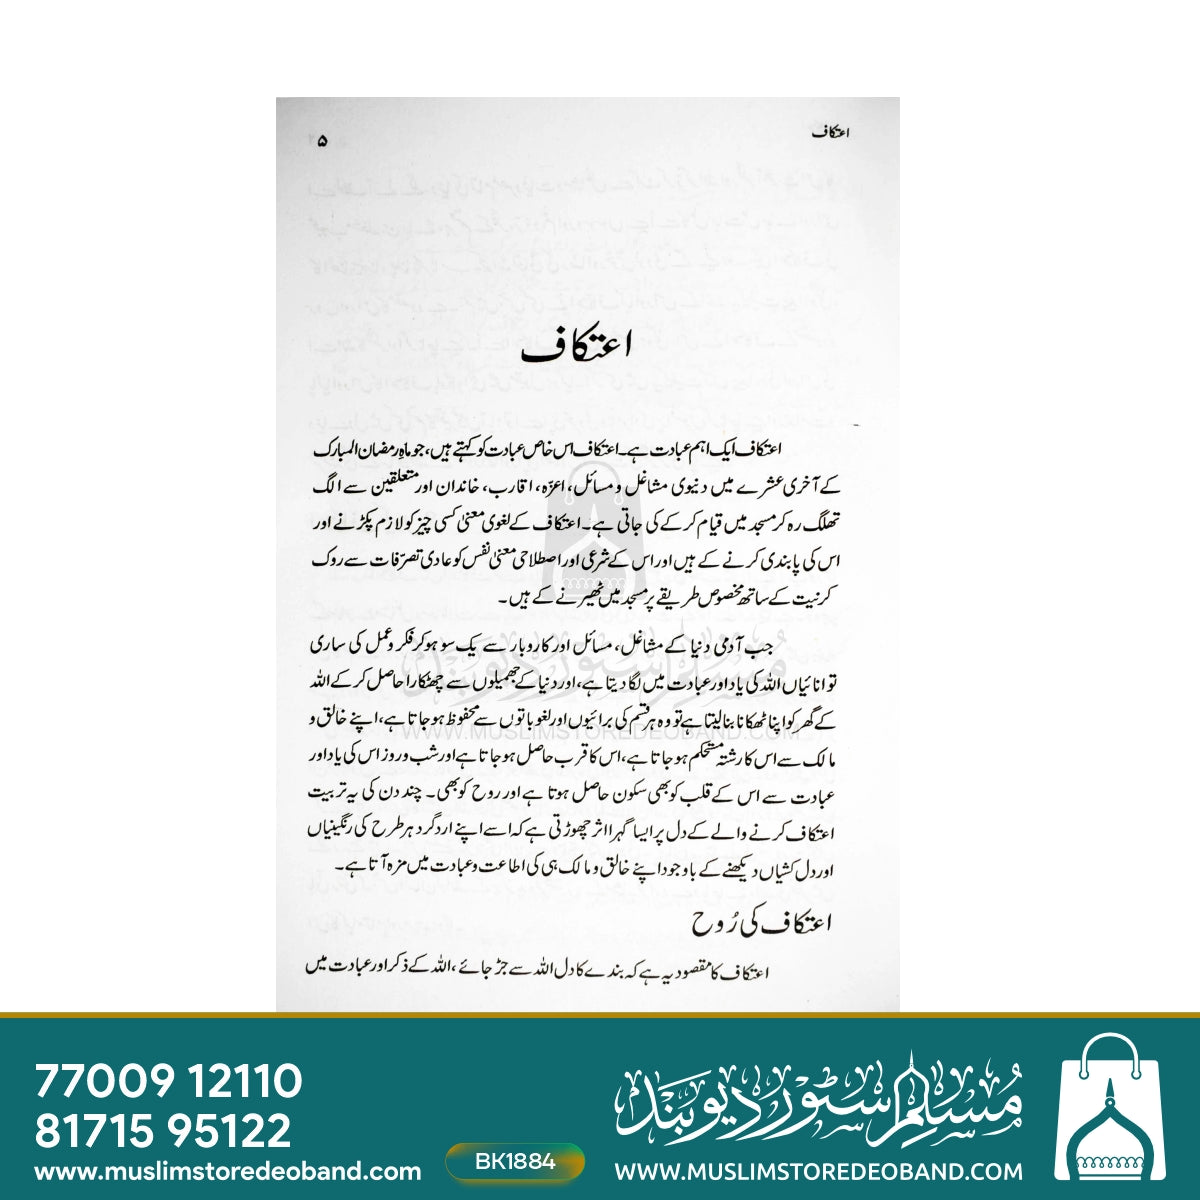 اعتکاف
۵
اعتکاف
اعتکاف ایک اہم عبادت ہے۔ اعتکاف اس خاص عبادت کو کہتے ہیں، جو ماہِ رمضان المبارک
کے آخری عشرے میں دنیوی مشاغل و مسائل، اعزّہ، اقارب، خاندان اور متعلقین سے الگ
تھلگ رہ کر مسجد میں قیام کر کے کی جاتی ہے۔ اعتکاف کے لغوی معنیٰ کسی چیز کو لازم پکڑنے اور
اس کی پابندی کرنے کے ہیں اور اس کے شرعی اور اصطلاحی معنیٰ نفس کو عادی تصرّفات سے روک
کر نیت کے ساتھ مخصوص طریقے پر مسجد میں ٹھیرنے کے ہیں۔
جب آدمی دنیا کے مشاغل، مسائل اور کاروبار سے یک سو ہو کر فکر و عمل کی ساری
توانائیاں اللہ کی یاد اور عبادت میں لگا دیتا ہے، اور دنیا کے جھمیلوں سے چھٹکارا حاصل کر کے اللہ
کے گھر کو اپنا ٹھکانا بنا لیتا ہے تو وہ ہر قسم کی برائیوں اور لغو باتوں سے محفوظ ہو جاتا ہے، اپنے خالق و
مالک سے اس کا رشتہ مستحکم ہو جاتا ہے، اس کا قرب حاصل ہو جاتا ہے اور شب و روز اس کی یاد اور
عبادت سے اس کے قلب کو بھی سکون حاصل ہوتا ہے اور روح کو بھی۔ چند دن کی یہ تربیت
اعتکاف کرنے والے کے دل پر ایسا گہرا اثر چھوڑتی ہے کہ اسے اپنے ارد گرد ہر طرح کی رنگینیاں
اور دل کشیاں دیکھنے کے باوجود اپنے خالق و مالک ہی کی اطاعت و عبادت میں مزہ آتا ہے۔
اعتکاف کی رُوح
اعتکاف کا مقصود یہ ہے کہ بندے کا دل اللہ سے جڑ جائے، اللہ کے ذکر اور عبادت میں
مُسلم سٹور دیوبند
WWW.MUSLIMSTOREDEOBAND.COM
77009 12110
81715 95122
www.muslimstoredeoband.com
BK1884
مُسلم سٹور دیوبند
WWW.MUSLIMSTOREDEOBAND.COM